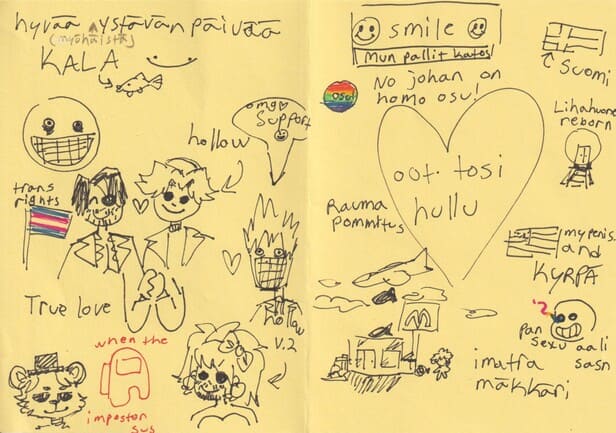 hyvää ystävän päivää
(myöhäistä)
KALA
hollow
omg
support
trans
rights
True love
when the
impostor
sus
hollow
v.2
smile
Mun pallit katos
No johan on
homo osu!
osu!
Suomi
Lihahuone
reborn
oot tosi
hullu
Rauma
pommitus
my penis
and
KYRPÄ
'2
pan
sexu aali
sasn
imatra
mäkkäri